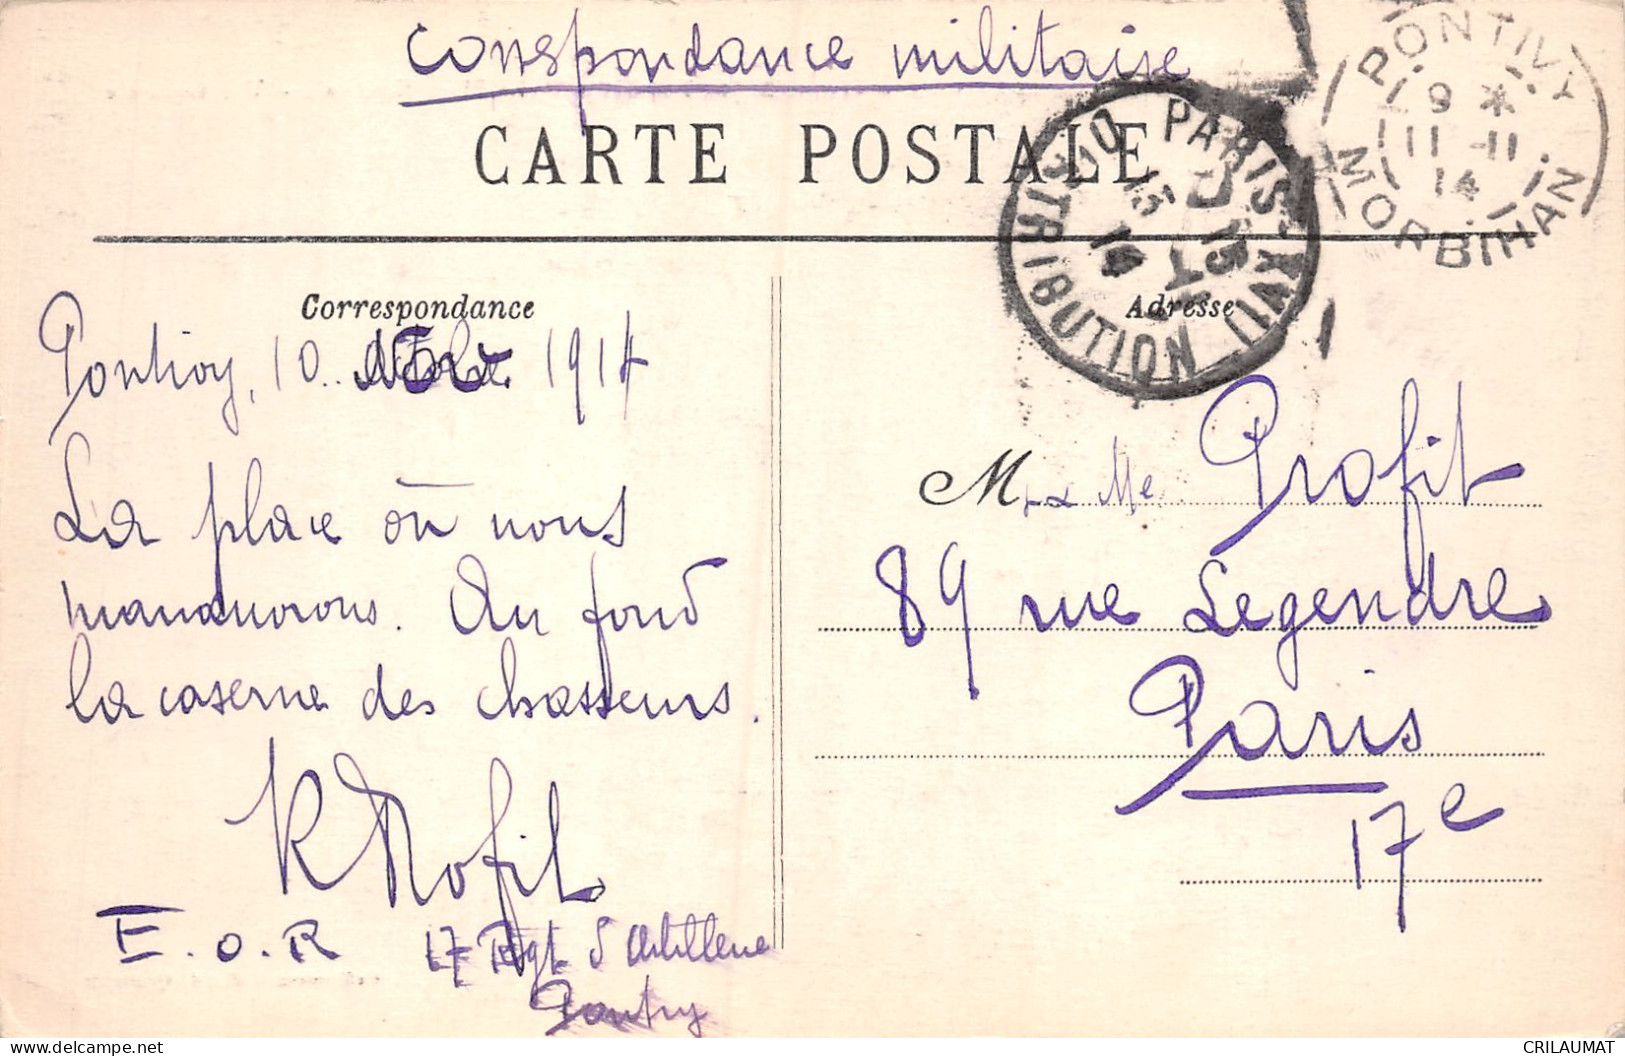 Correspondance militaire
CARTE POSTALE
PONTIVY
9 *
11 -11
14
MORBIHAN
PARIS XVII DISTRIBUTION
15
14
Correspondance
Adresse
Pontivy, 10 Nov 1914
La place où nous
manœuvrons. Au fond
la caserne des chasseurs.
R Profit
E.O.R 17 Rgt d'Artillerie
Pontivy
M. & Me Profit
89 rue Legendre
Paris
17e
CRILAUMAT